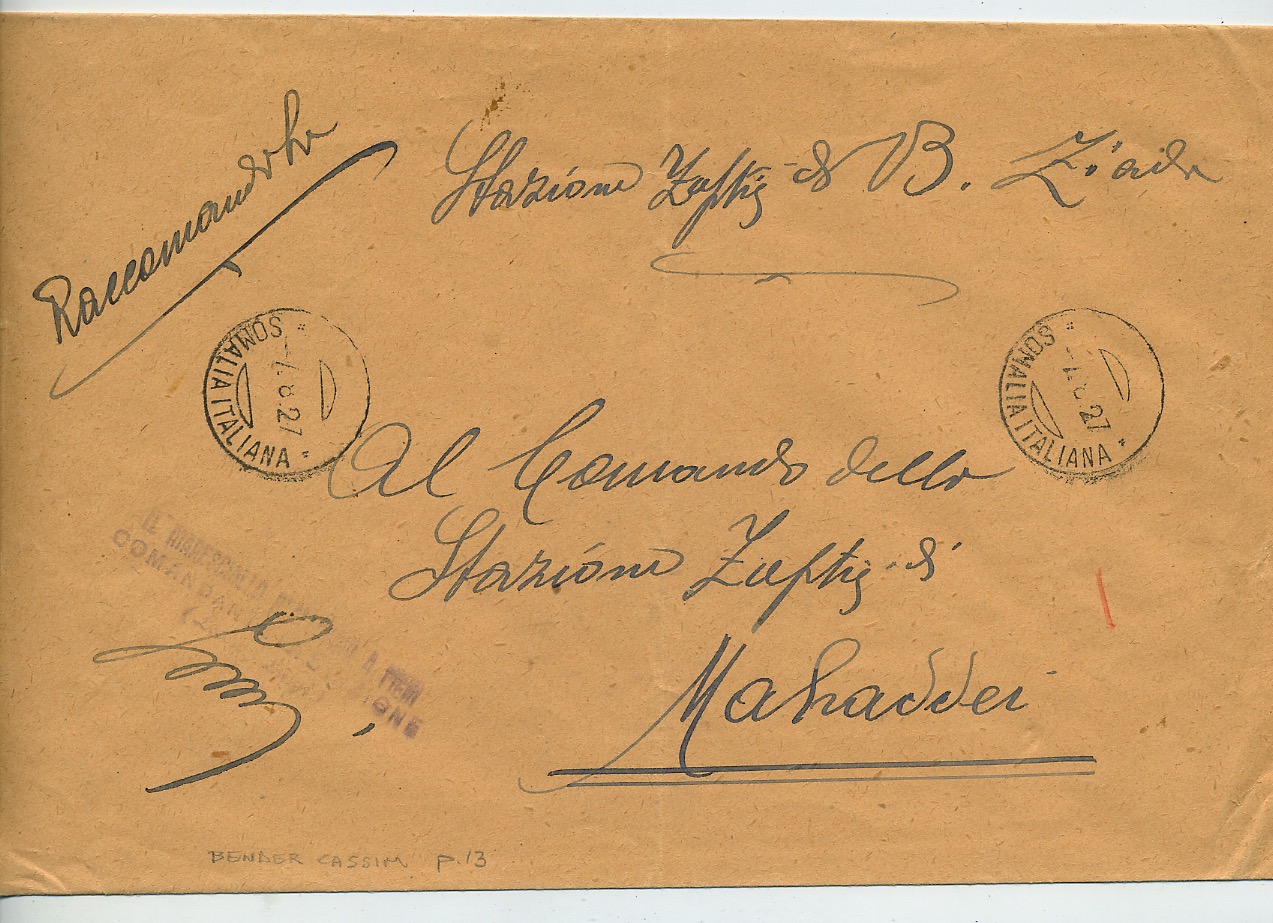 Raccomandata
Stazione Zaptiè di B. Ziada
SOMALIA ITALIANA
-4.8.27
SOMALIA ITALIANA
-4.8.27
Al Comando della
Stazione Zaptiè di
Mahaddei
IL MARESCIALLO A PIEDI
COMANDANTE STAZIONE
BENDER CASSIM P.13